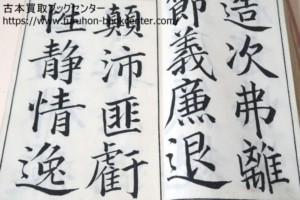 古本買取ブックセンター
http://www.furuhon-bookcenter.com/
造次弗離
節義廉退
顛沛匪虧
性静情逸